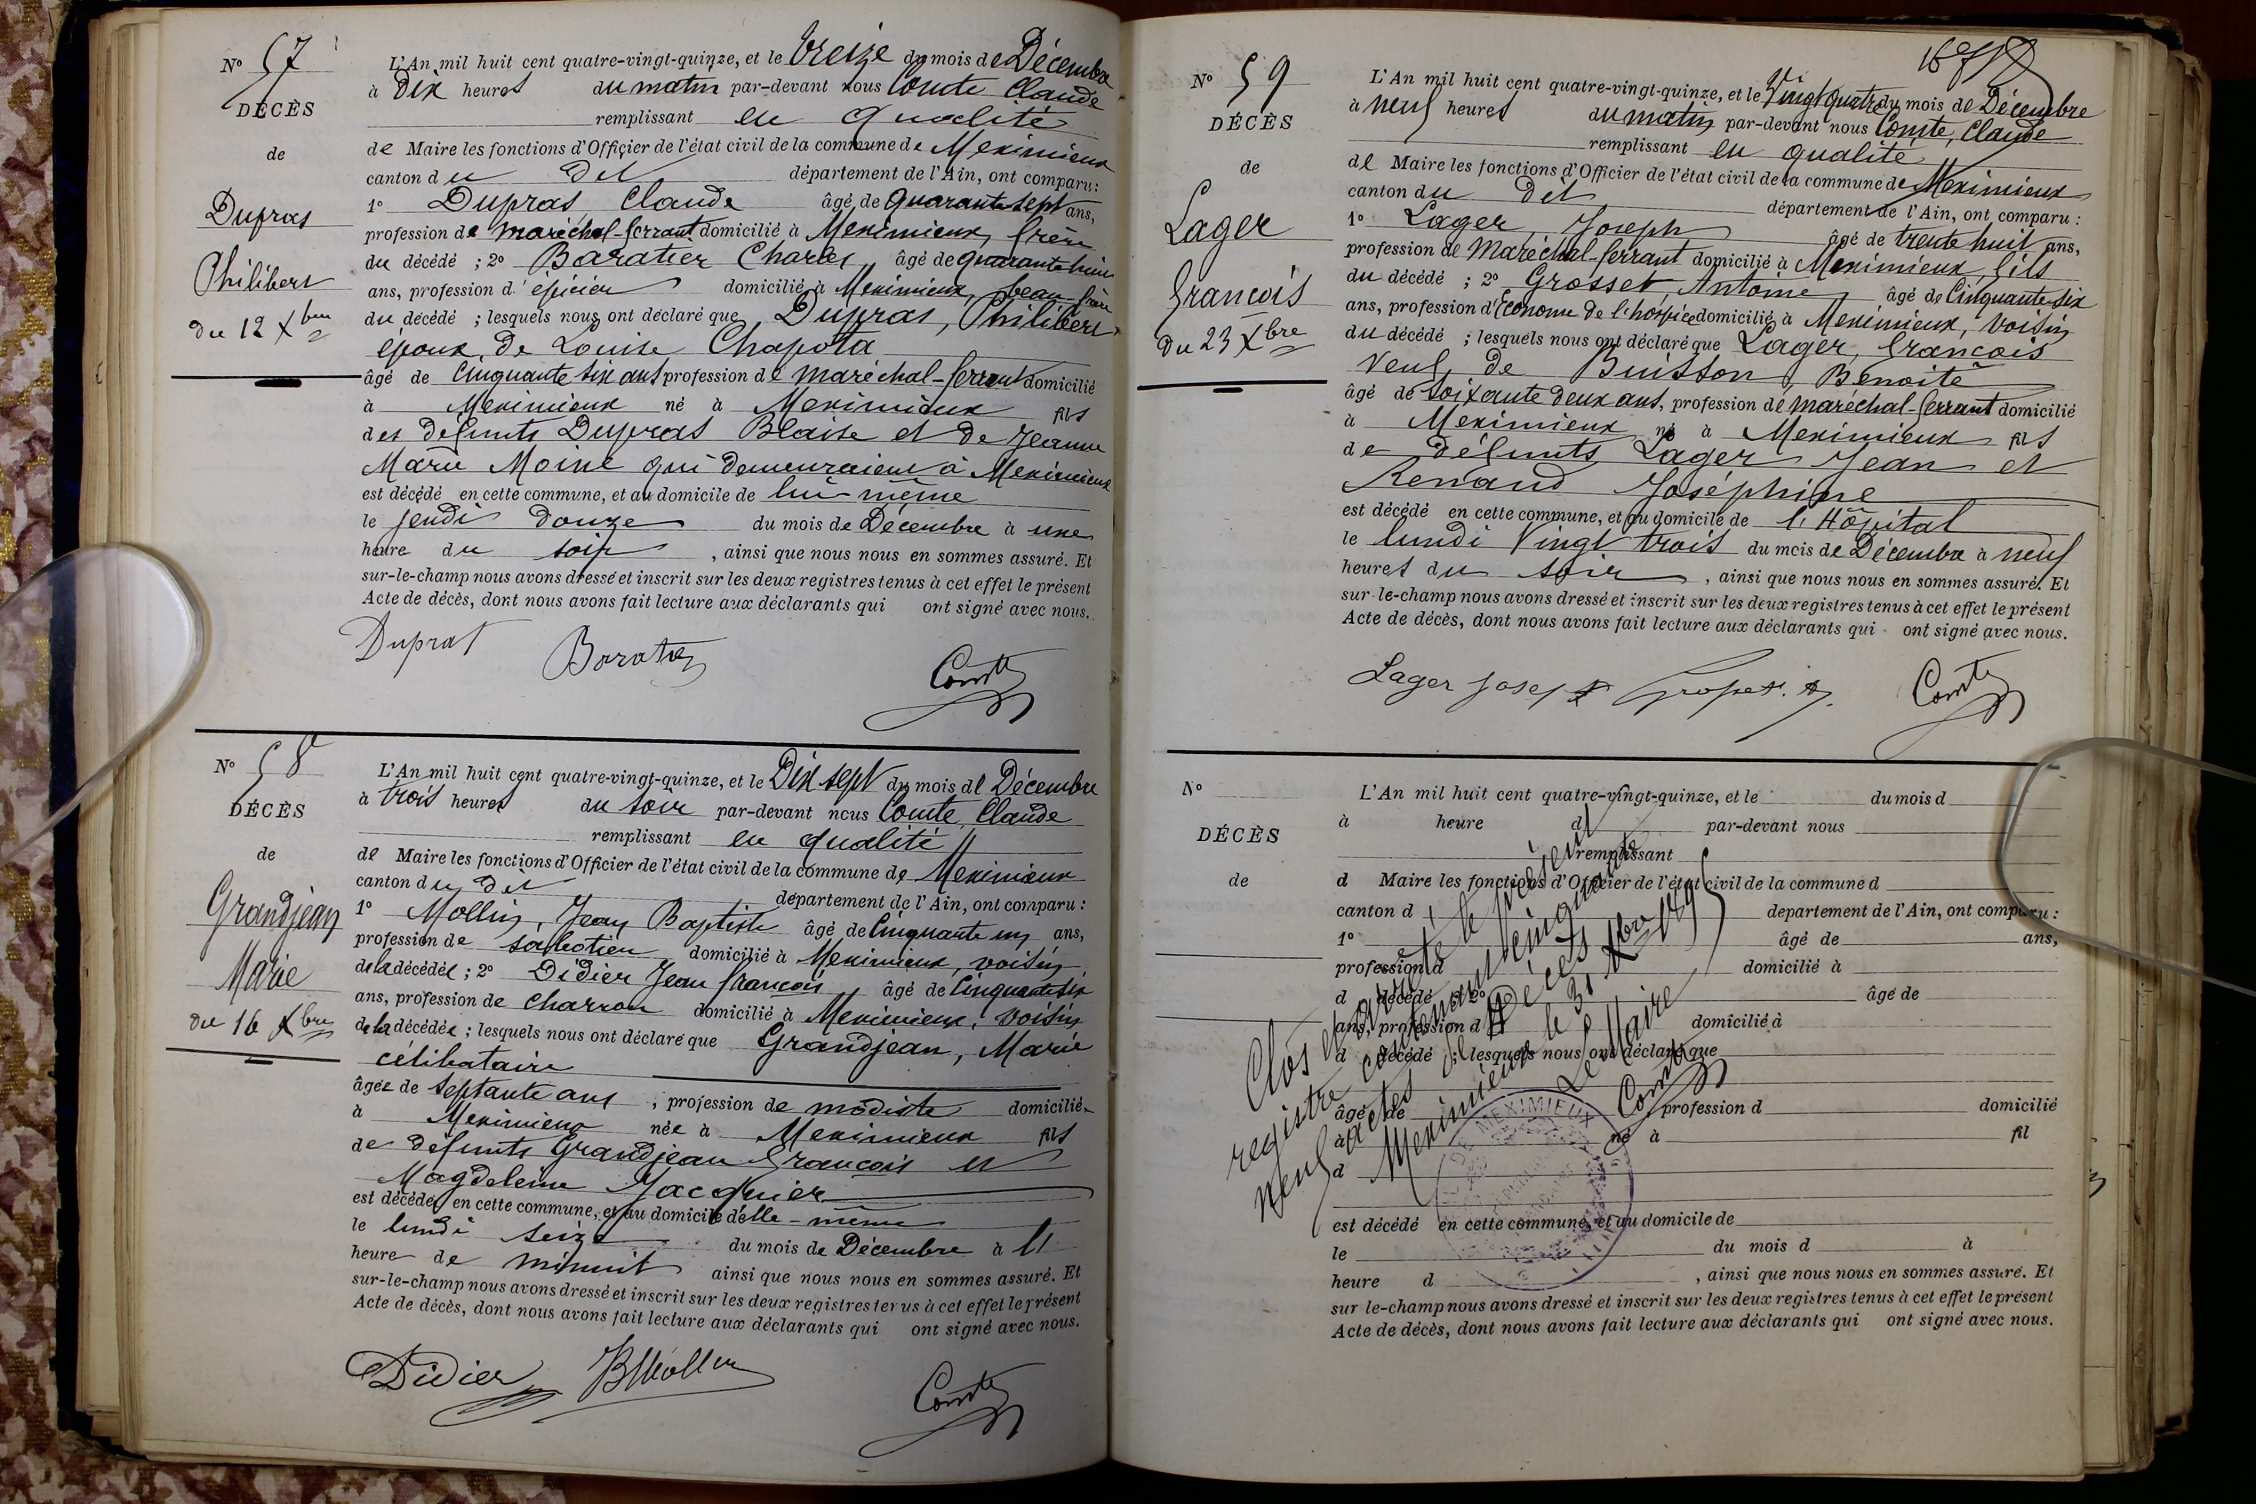 N° 57
DÉCÈS
de
Dupras
Philibert
du 12 Xbre
L'An mil huit cent quatre-vingt-quinze, et le treize du mois de Décembre
à dix heures du matin par-devant nous Comte Claude
remplissant en qualité
de Maire les fonctions d'Officier de l'état civil de la commune de Meximieux
canton du dit département de l'Ain, ont comparu:
1° Dupras, Claude âgé de quarante sept ans,
profession de maréchal-ferrant domicilié à Meximieux, frère
du décédé ; 2° Baratier Charles âgé de quarante huit
ans, profession d'épicier domicilié à Meximieux, beau-frère
du décédé ; lesquels nous ont déclaré que Dupras, Philibert
époux de Louise Chapota
âgé de cinquante six ans profession de maréchal-ferrant domicilié
à Meximieux né à Meximieux fils
des défunts Dupras Blaise et de Jeanne
Marie Moine qui demeuraient à Meximieux
est décédé en cette commune, et au domicile de lui-même
le jeudi douze du mois de Décembre à une
heure du soir , ainsi que nous nous en sommes assuré. Et
sur-le-champ nous avons dressé et inscrit sur les deux registres tenus à cet effet le présent
Acte de décès, dont nous avons fait lecture aux déclarants qui ont signé avec nous.
Duprat Baratier Comte
N° 58
DÉCÈS
de
Grandjean
Marie
du 16 Xbre
L'An mil huit cent quatre-vingt-quinze, et le Dix sept du mois de Décembre
à trois heures du soir par-devant nous Comte, Claude
remplissant en qualité
de Maire les fonctions d'Officier de l'état civil de la commune de Meximieux
canton du dit département de l'Ain, ont comparu :
1° Mollin, Jean Baptiste âgé de Cinquante un ans,
profession de sabotier domicilié à Meximieux, voisin
de la décédée ; 2° Didier Jean François âgé de Cinquante six
ans, profession de charron domicilié à Meximieux, voisin
de la décédée ; lesquels nous ont déclaré que Grandjean, Marie
célibataire
âgée de septante ans , profession de modiste domiciliée
à Meximieux née à Meximieux fils
de défunts Grandjean François et
Magdeleine Jacquier
est décédée en cette commune, et au domicile d'elle-même
le lundi seize du mois de Décembre à l'
heure de minuit ainsi que nous nous en sommes assuré. Et
sur-le-champ nous avons dressé et inscrit sur les deux registres tenus à cet effet le présent
Acte de décès, dont nous avons fait lecture aux déclarants qui ont signé avec nous.
Didier JB Mollin Comte
N° 59
DÉCÈS
de
Lager
François
du 23 Xbre
L'An mil huit cent quatre-vingt-quinze, et le Vingt quatre du mois de Décembre
à neuf heures du matin par-devant nous Comte, Claude
remplissant en qualité
de Maire les fonctions d'Officier de l'état civil de la commune de Meximieux
canton du dit département de l'Ain, ont comparu :
1° Lager, Joseph âgé de trente huit ans,
profession de Maréchal-ferrant domicilié à Meximieux, fils
du décédé ; 2° Grosset, Antoine âgé de Cinquante six
ans, profession d'Econome de l'hospice domicilié à Meximieux, voisin
du décédé ; lesquels nous ont déclaré que Lager, François
veuf de Buisson, Benoite
âgé de soixante deux ans, profession de maréchal-ferrant domicilié
à Meximieux né à Meximieux fils
de défunts Lager Jean et
Renaud Joséphine
est décédé en cette commune, et au domicile de l'Hôpital
le lundi Vingt trois du mois de Décembre à neuf
heures du soir , ainsi que nous nous en sommes assuré. Et
sur-le-champ nous avons dressé et inscrit sur les deux registres tenus à cet effet le présent
Acte de décès, dont nous avons fait lecture aux déclarants qui ont signé avec nous.
Lager Joseph Grosset. A. Comte
N°
DÉCÈS
de
L'An mil huit cent quatre-vingt-quinze, et le du mois d
à heure d par-devant nous
remplissant
d Maire les fonctions d'Officier de l'état civil de la commune d
canton d département de l'Ain, ont comparu :
1° âgé de ans,
profession d domicilié à
d décédé ; 2° âgé de
ans, profession d domicilié à
d décédé ; lesquels nous ont déclaré que
âgé de profession d domicilié
à né à fil
d
est décédé en cette commune, et au domicile de
le du mois d à
heure d , ainsi que nous nous en sommes assuré. Et
sur le-champ nous avons dressé et inscrit sur les deux registres tenus à cet effet le présent
Acte de décès, dont nous avons fait lecture aux déclarants qui ont signé avec nous.
Clos et arrêté le présent
registre contenant cinquante
neuf actes de Décès
Meximieux le 31 Xbre 1895
Le Maire
Comte
DE MEXIMIEUX